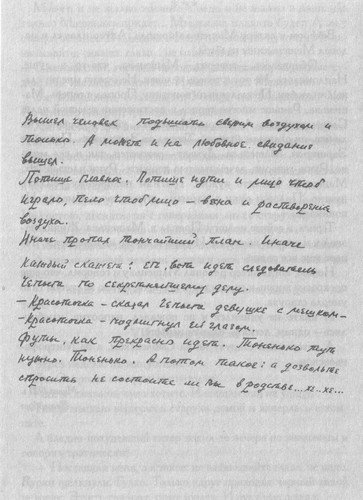 Вышел человек подышать свежим воздухом и
только. А может и на любовное свидание
вышел.
Потише главное. Потише идти и лицо чтоб
играло, тело чтоб лицо – вена и растворение
воздуха.
Иначе пропал тончайший план. Иначе
каждый скажет: ег, вота идет следователь
Чепыга по секретнейшему делу.
– Красоточка – сказал Чепыга девушке с мешком –
– Красоточка – подмигнул ей глазом.
Футы, как прекрасно идет. Тоненько тут
нужно. Тоненько. А потом такое: а дозвольте
спросить не состоите ли Вы в родстве...хе..хе...